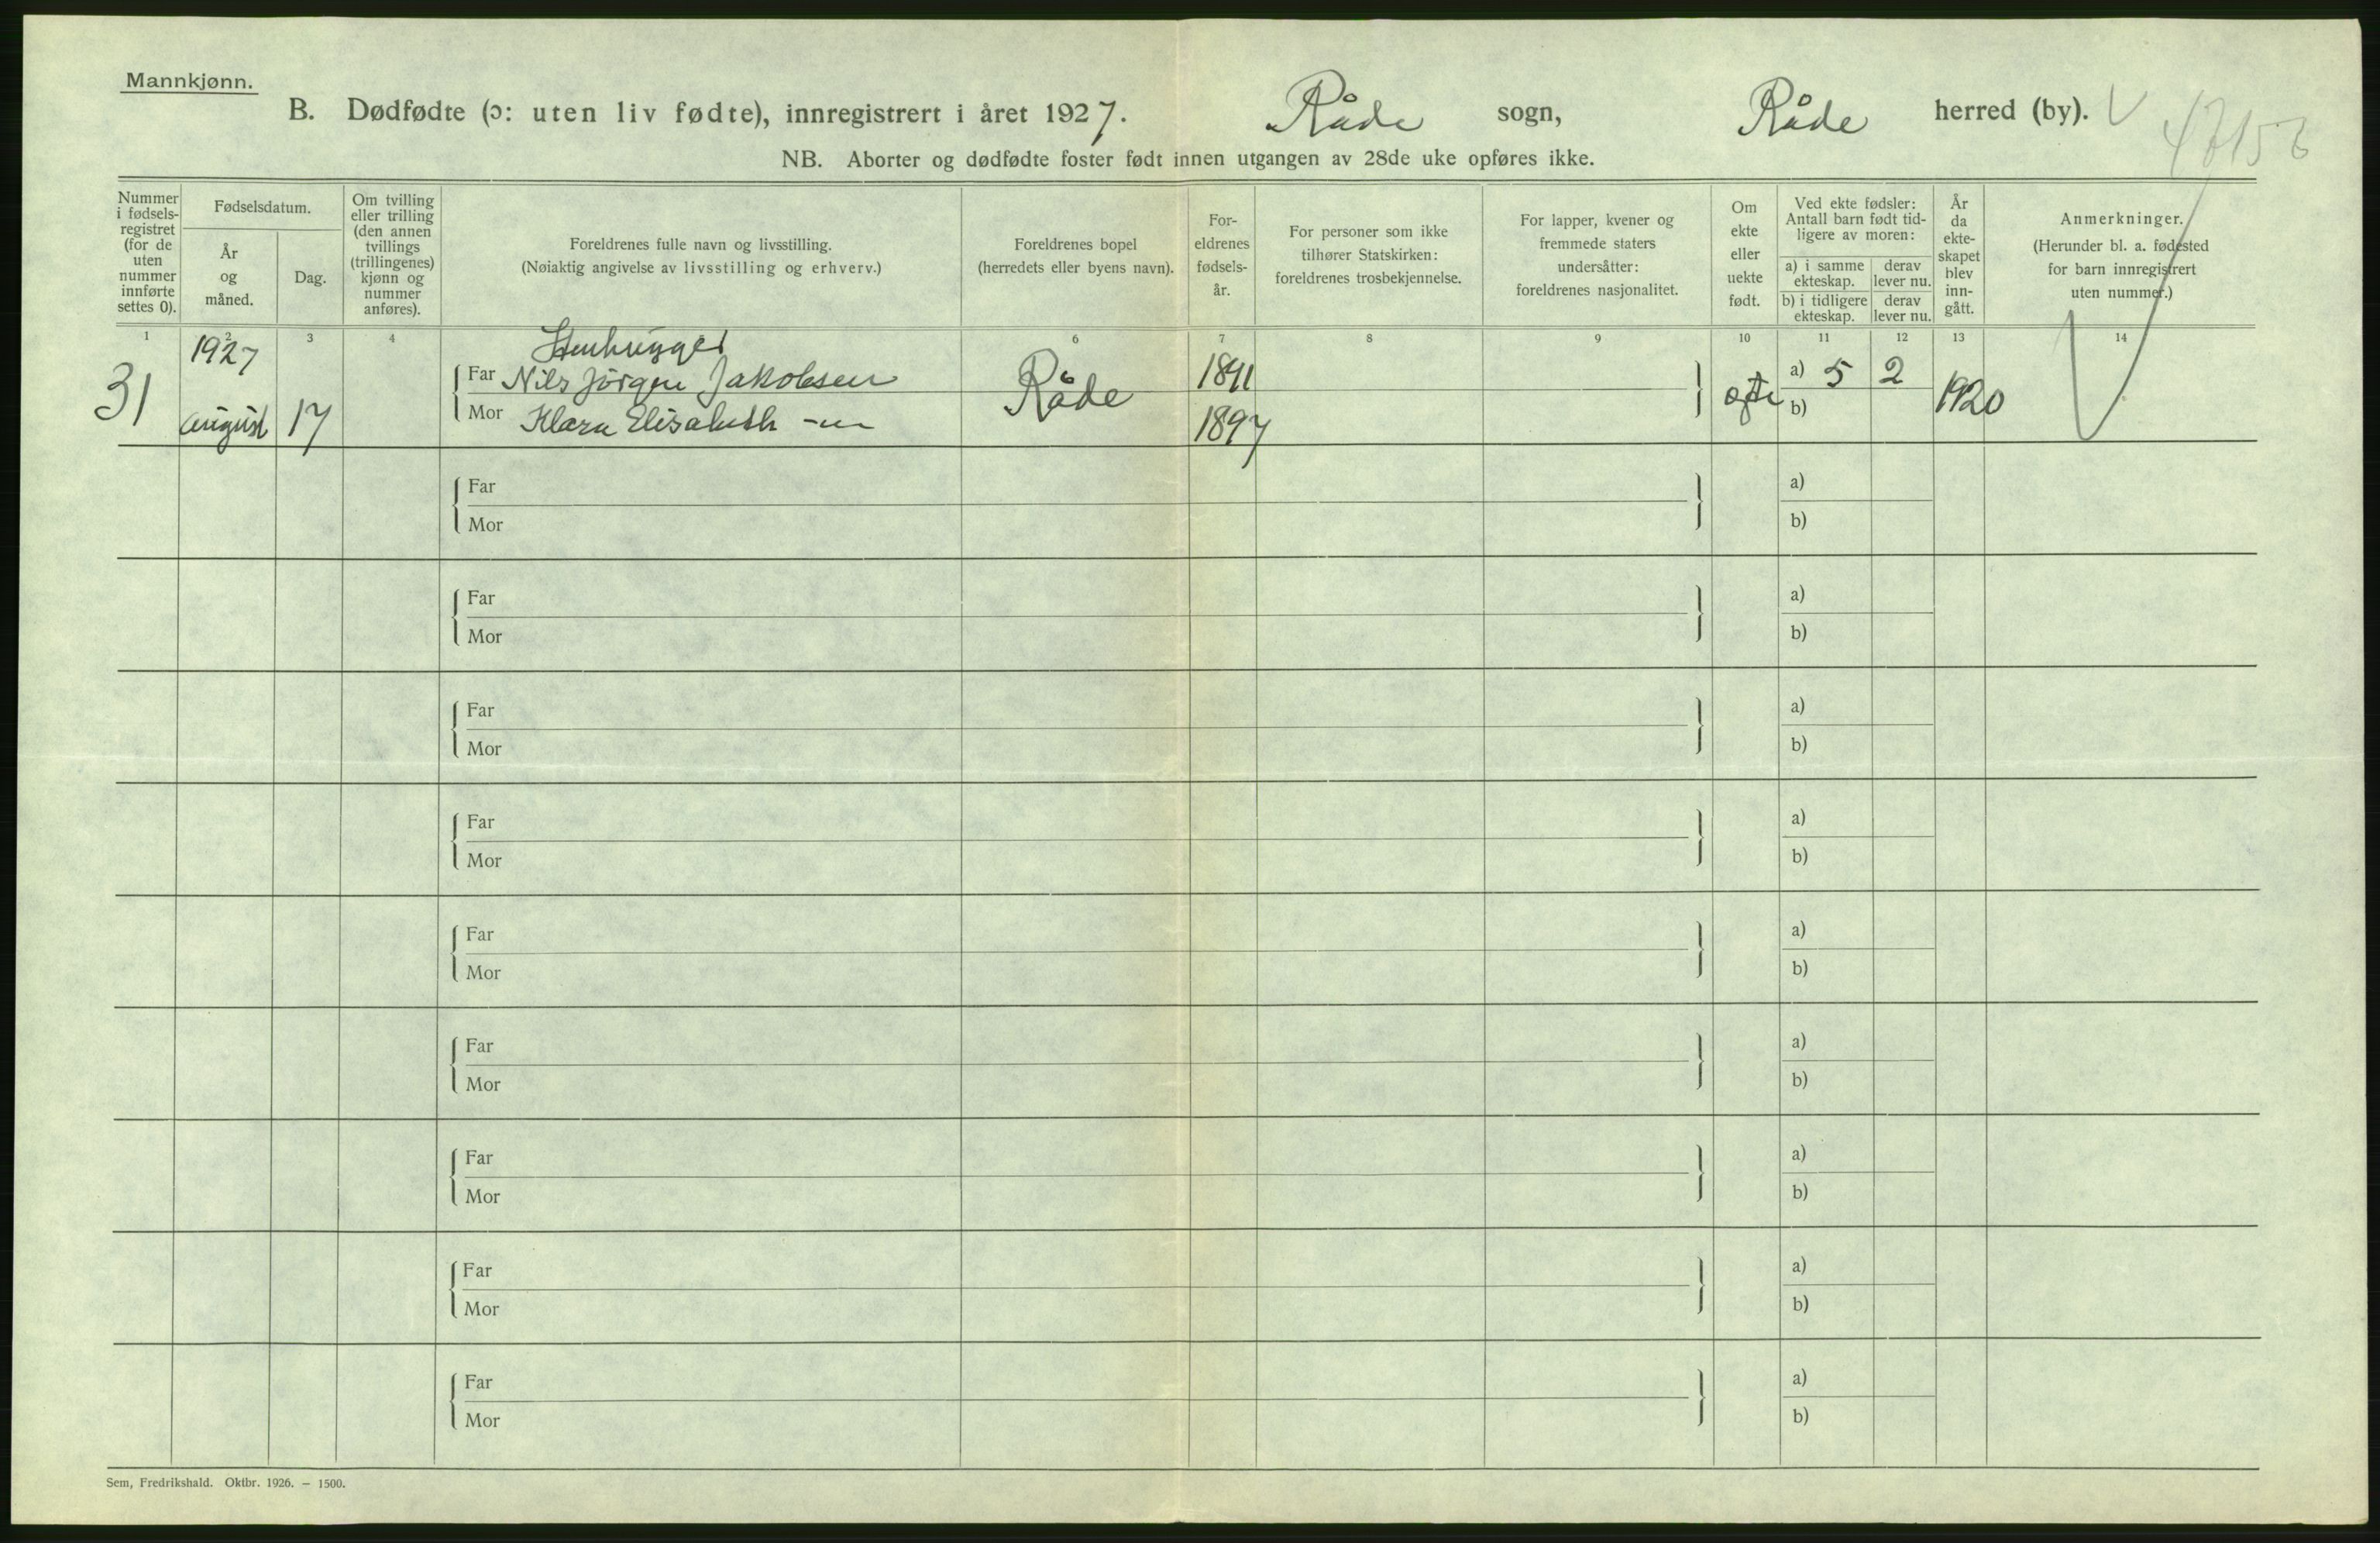 Mannkjønn.
B. Dødfødte (ɔ: uten liv fødte), innregistrert i året 1927. Råde sogn, Råde herred (by).
NB. Aborter og dødfødte foster født innen utgangen av 28de uke opføres ikke.
Nummer
i fødsels-
registret
(for de
uten
nummer
innførte
settes 0).
Fødselsdatum.
År
og
måned.
Dag.
Om tvilling
eller trilling
(den annen
tvillings
(trillingenes)
kjønn og
nummer
anføres).
Foreldrenes fulle navn og livsstilling.
(Nøiaktig angivelse av livsstilling og erhverv.)
Foreldrenes bopel
(herredets eller byens navn).
For-
eldrenes
fødsels-
år.
For personer som ikke
tilhører Statskirken:
foreldrenes trosbekjennelse.
For lapper, kvener og
fremmede staters
undersåtter:
foreldrenes nasjonalitet.
Om
ekte
eller
uekte
født.
Ved ekte fødsler:
Antall barn født tid-
ligere av moren:
a) i samme
ekteskap.
derav
lever nu.
b) i tidligere
ekteskap.
derav
lever nu.
År
da
ekte-
skapet
blev
inn-
gått.
Anmerkninger.
(Herunder bl. a. fødested
for barn innregistrert
uten nummer.)
1 2 3 4 6 7 8 9 10 11 12 13 14
31
1927
august
17
Stenhugger
Far Nils Jörgen Jakobsen
Mor Klara Elisabeth -en
Råde
1891
1897
ekte
a) 5 2
b)
1920
Far
Mor
a)
b)
Far
Mor
a)
b)
Far
Mor
a)
b)
Far
Mor
a)
b)
Far
Mor
a)
b)
Far
Mor
a)
b)
Far
Mor
a)
b)
Far
Mor
a)
b)
Far
Mor
a)
b)
Sem, Fredrikshald. Oktbr. 1926. – 1500.